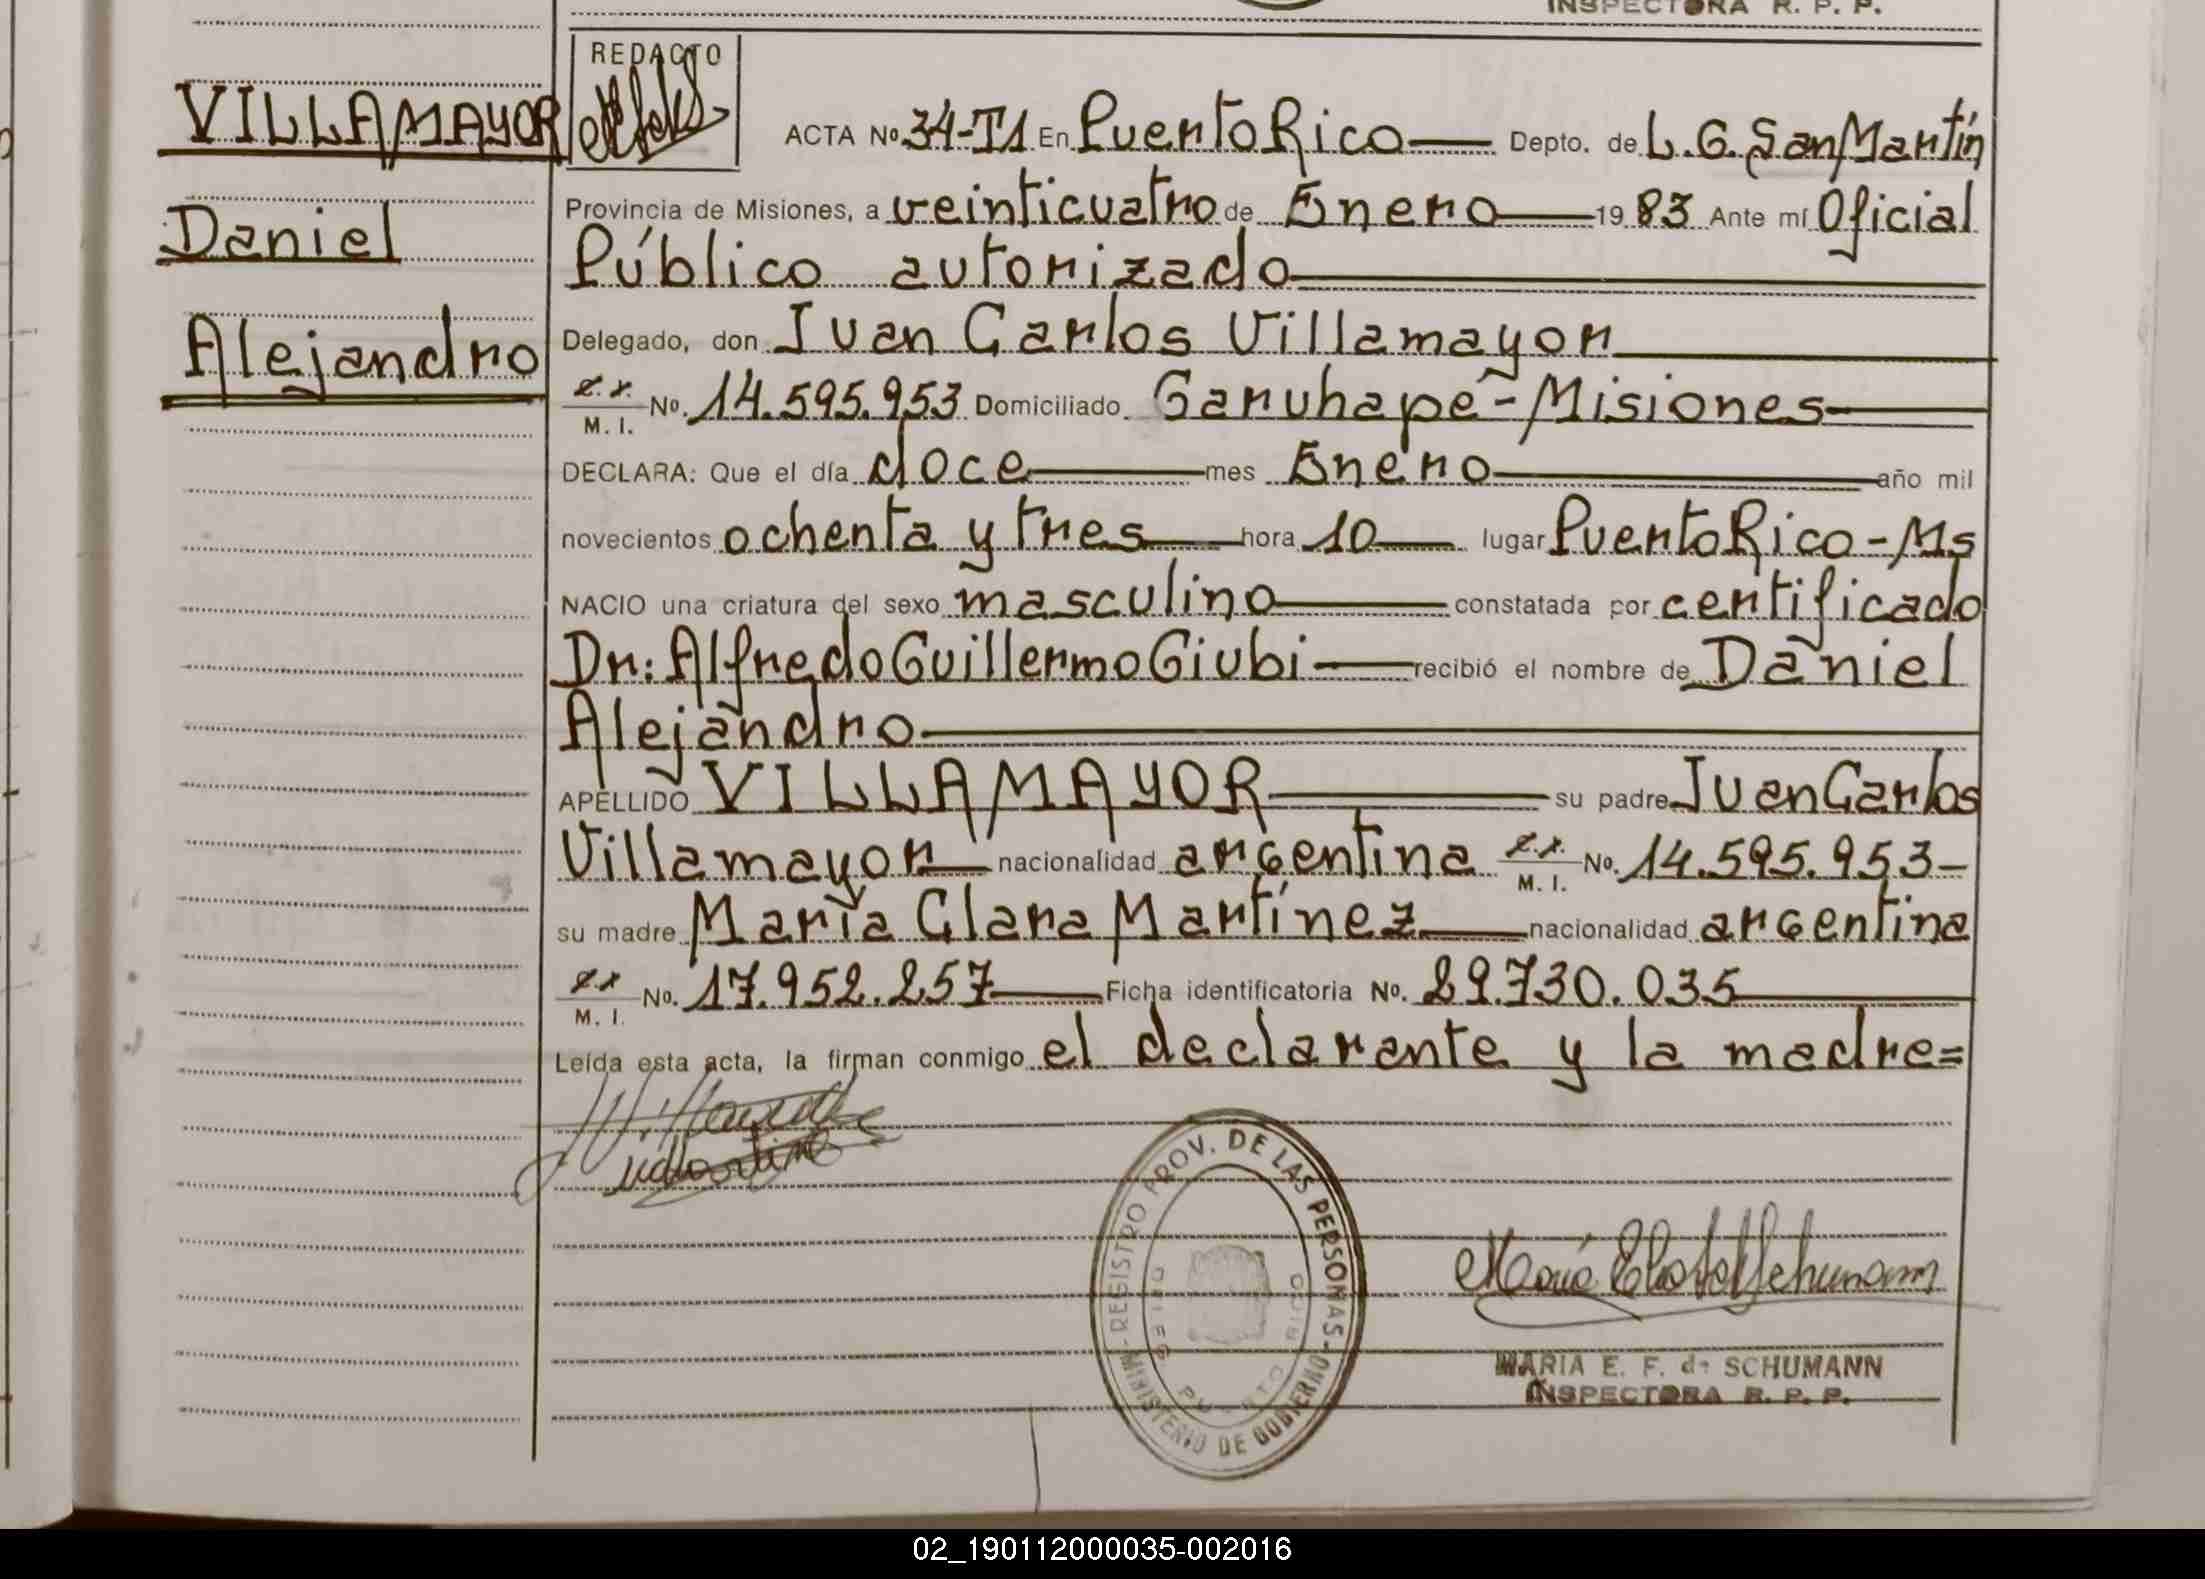 INSPECTORA R. P. P.
VILLAMAYOR
Daniel
Alejandro
REDACTO
ACTA No 34-T1 En Puerto Rico Depto. de L.G. San Martín
Provincia de Misiones, a veinticuatro de Enero 1983 Ante mí Oficial
Público autorizado
Delegado, don Juan Carlos Villamayor
M. I. No. 14.595.953 Domiciliado Garuhapé-Misiones
DECLARA: Que el día doce mes Enero año mil
novecientos ochenta y tres hora 10 lugar Puerto Rico-Ms
NACIO una criatura del sexo masculino constatada por certificado
Dr: Alfredo Guillermo Giubi recibió el nombre de Daniel
Alejandro
APELLIDO VILLAMAYOR su padre Juan Carlos
Villamayor nacionalidad argentina M. I. No. 14.595.953-
su madre María Clara Martínez nacionalidad argentina
M. I. No. 17.952.257 Ficha identificatoria No. 29.730.035
Leída esta acta, la firman conmigo el declarante y la madre=
REGISTRO PROV. DE LAS PERSONAS - MINISTERIO DE GOBIERNO
PUERTO RICO
MARIA E. F. de SCHUMANN
INSPECTORA R. P. P.
02_190112000035-002016